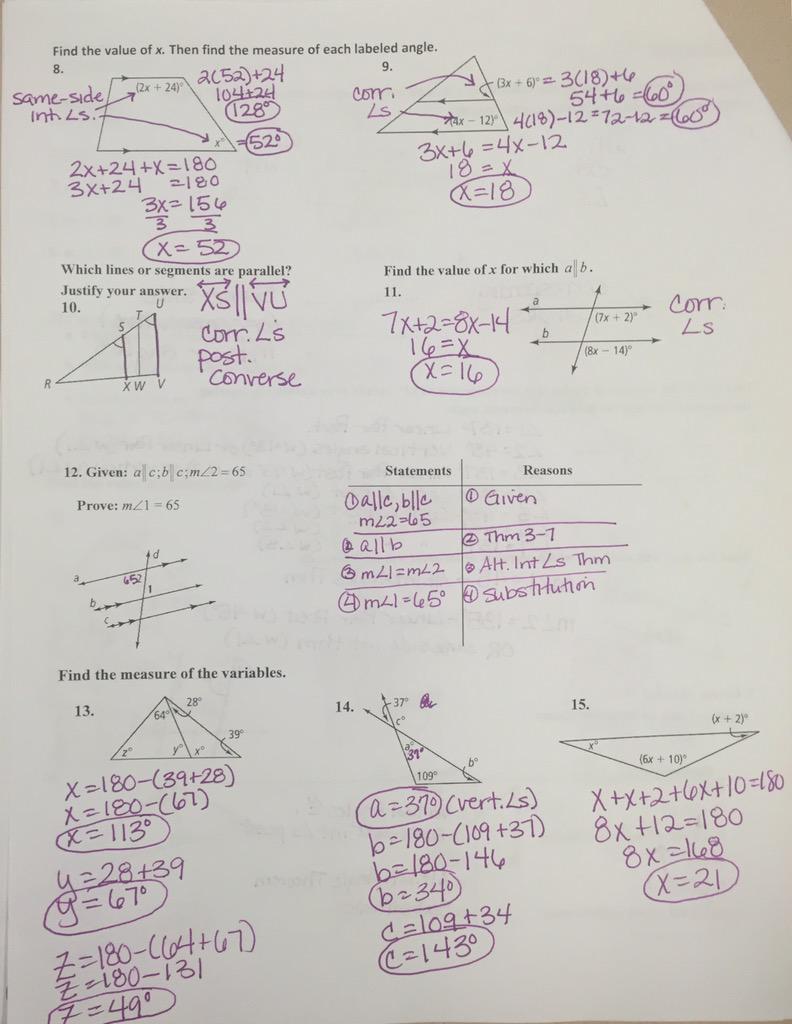 Find the value of x. Then find the measure of each labeled angle.
8.
(2x + 24)°
2(52)+24
104+24
128°
same-side
int. ∠s.
x°
=52°
2x+24+x=180
3x+24 =180
3x = 156
3 3
x = 52
9.
corr.
∠s
(3x + 6)°
= 3(18)+6
54+6 = 60°
(4x − 12)°
4(18)-12=72-12=60°
3x+6 = 4x-12
18 = x
x=18
Which lines or segments are parallel?
Justify your answer.
10.
XS || VU
Corr. ∠s
post.
Converse
U
T
S
R
X W V
Find the value of x for which a∥b.
11.
7x+2=8x-14
16=x
x=16
a
(7x + 2)°
b
(8x − 14)°
Corr.
∠s
12. Given: a∥c;b∥c;m∠2 = 65
Prove: m∠1 = 65
d
a
65 2
1
b
c
Statements Reasons
① a||c, b||c
m∠2=65
① Given
② a||b
② Thm 3-7
③ m∠1=m∠2
③ Alt. Int ∠s Thm
④ m∠1=65°
④ Substitution
Find the measure of the variables.
13.
28°
64°
39°
z°
y°
x°
x=180-(39+28)
x=180-(67)
x=113°
y=28+39
y=67°
z=180-(64+67)
z=180-131
z=49°
14.
37°
c°
a°
37°
b°
109°
a=37° (vert. ∠s)
b=180-(109+37)
b=180-146
b=34°
c=109+34
c=143°
15.
(x + 2)°
x°
(6x + 10)°
x+x+2+6x+10=180
8x+12=180
8x=168
x=21